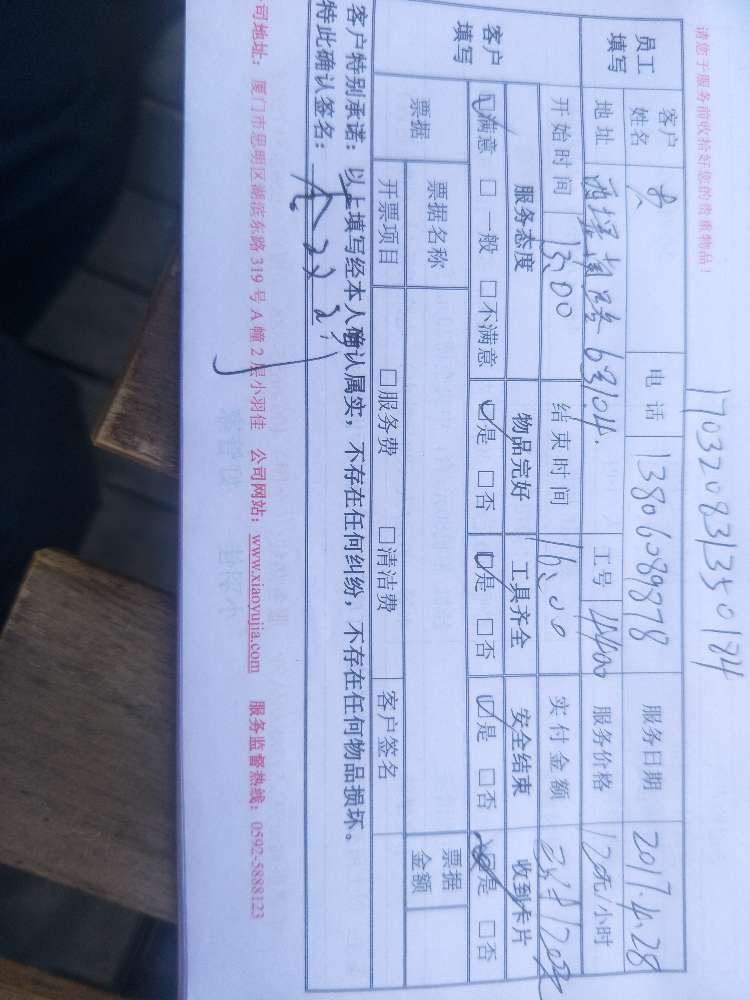 170320831350184
请您于服务前收拾好您的贵重物品!
员工填写 客户姓名 电话 13806089878 服务日期 2017.4.28
地址 63104. 工号 4400 服务价格 120元/小时
开始时间 13:00 结束时间 16:00 实付金额
客户填写 服务态度 物品完好 工具齐全 安全结束 收到卡片
☑满意 □一般 □不满意 ☑是 □否 ☑是 □否 ☑是 □否 ☑是 □否
票据 票据名称 票据金额
开票项目 □服务费 □清洁费 客户签名
客户特别承诺:以上填写经本人确认属实,不存在任何纠纷,不存在任何物品损坏。
特此确认签名:
司地址:厦门市思明区湖滨东路 319 号 A 幢 2 层小羽佳 公司网站:www.xiaoyujia.com 服务监督热线:0592-5888123